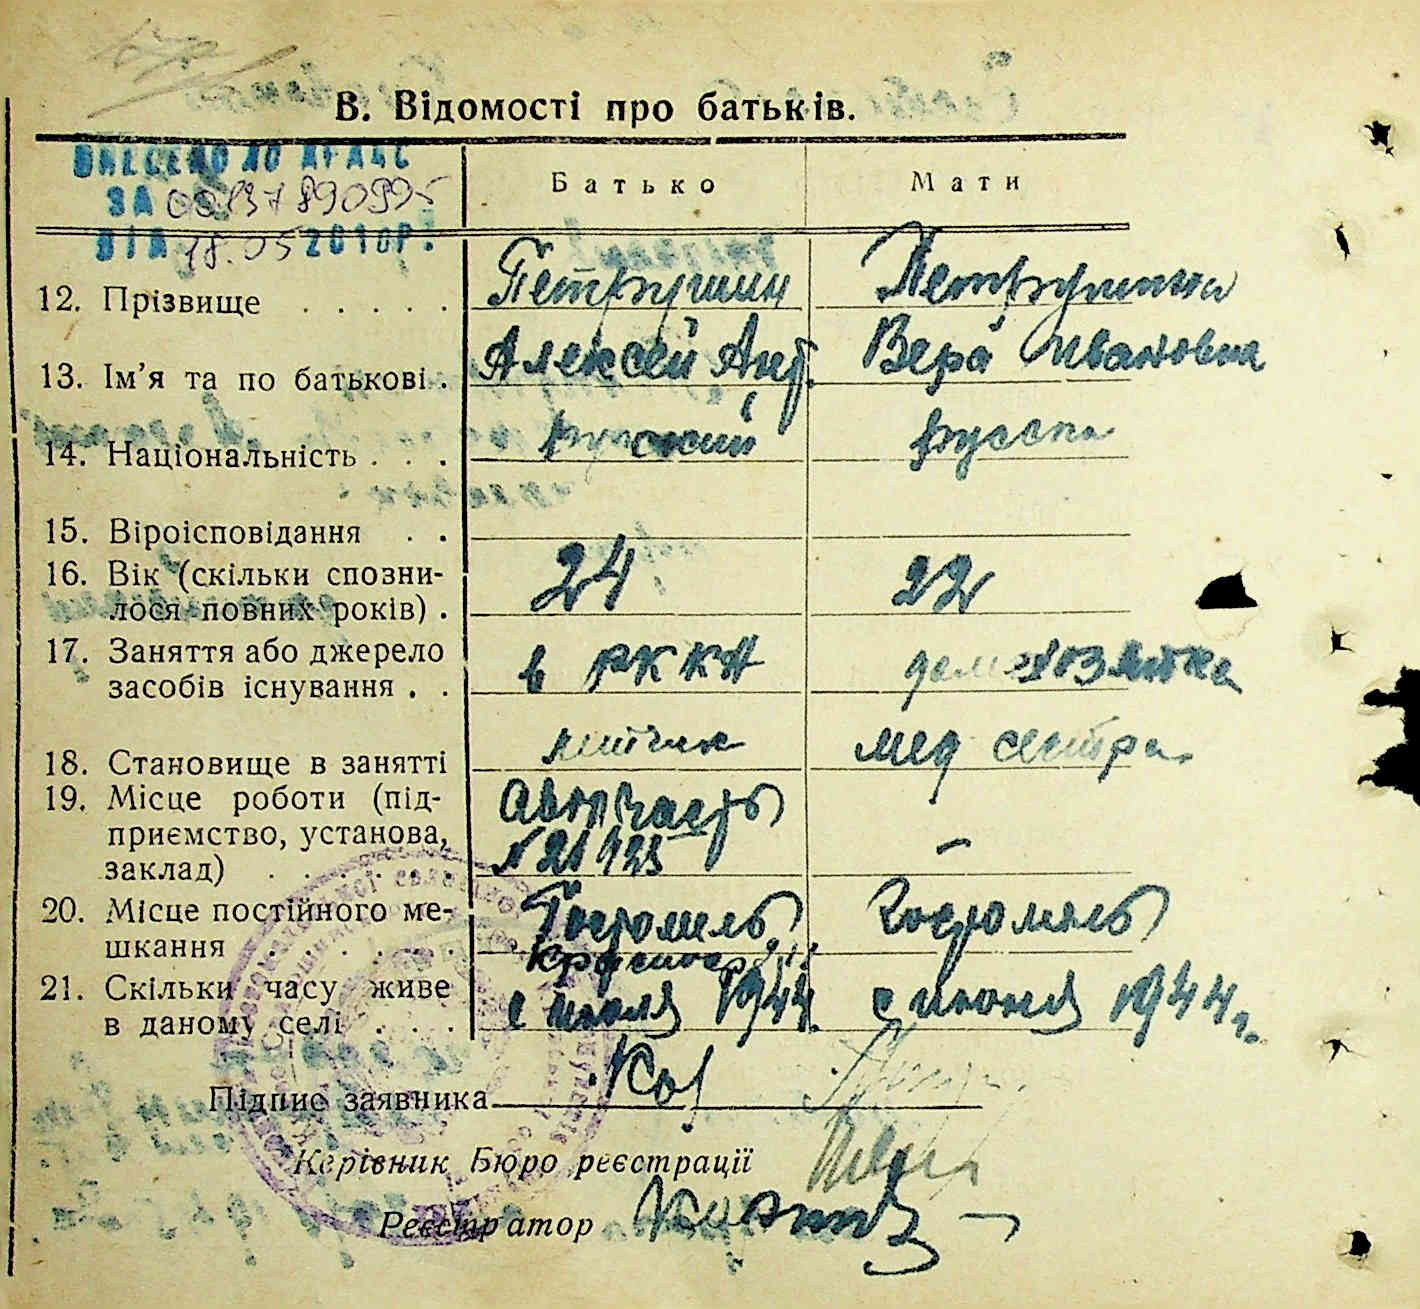 В. Відомості про батьків.
ВНЕСЕНО ДО ДРАЦС
ЗА 00137890995
ВІД 18.05 2010Р.
Батько Мати
12. Прізвище . . . . . Петрушин Петрушина
13. Ім'я та по батькові . Алексей Анд. Вера Ивановна
14. Національність . . . русский русска
15. Віроісповідання . .
16. Вік (скільки сповни-
лося повних років) . 24 22
17. Заняття або джерело
засобів існування . . в РККА домохозяйка
18. Становище в занятті мед сестра
19. Місце роботи (під-
приємство, установа,
заклад) . . . . . –
20. Місце постійного ме-
шкання . . . . Гостомель Гостомель
21. Скільки часу живе
в даному селі . . . с июля 1944. с июня 1944 г.
Підпис заявника
Керівник Бюро реєстрації
Реєстратор